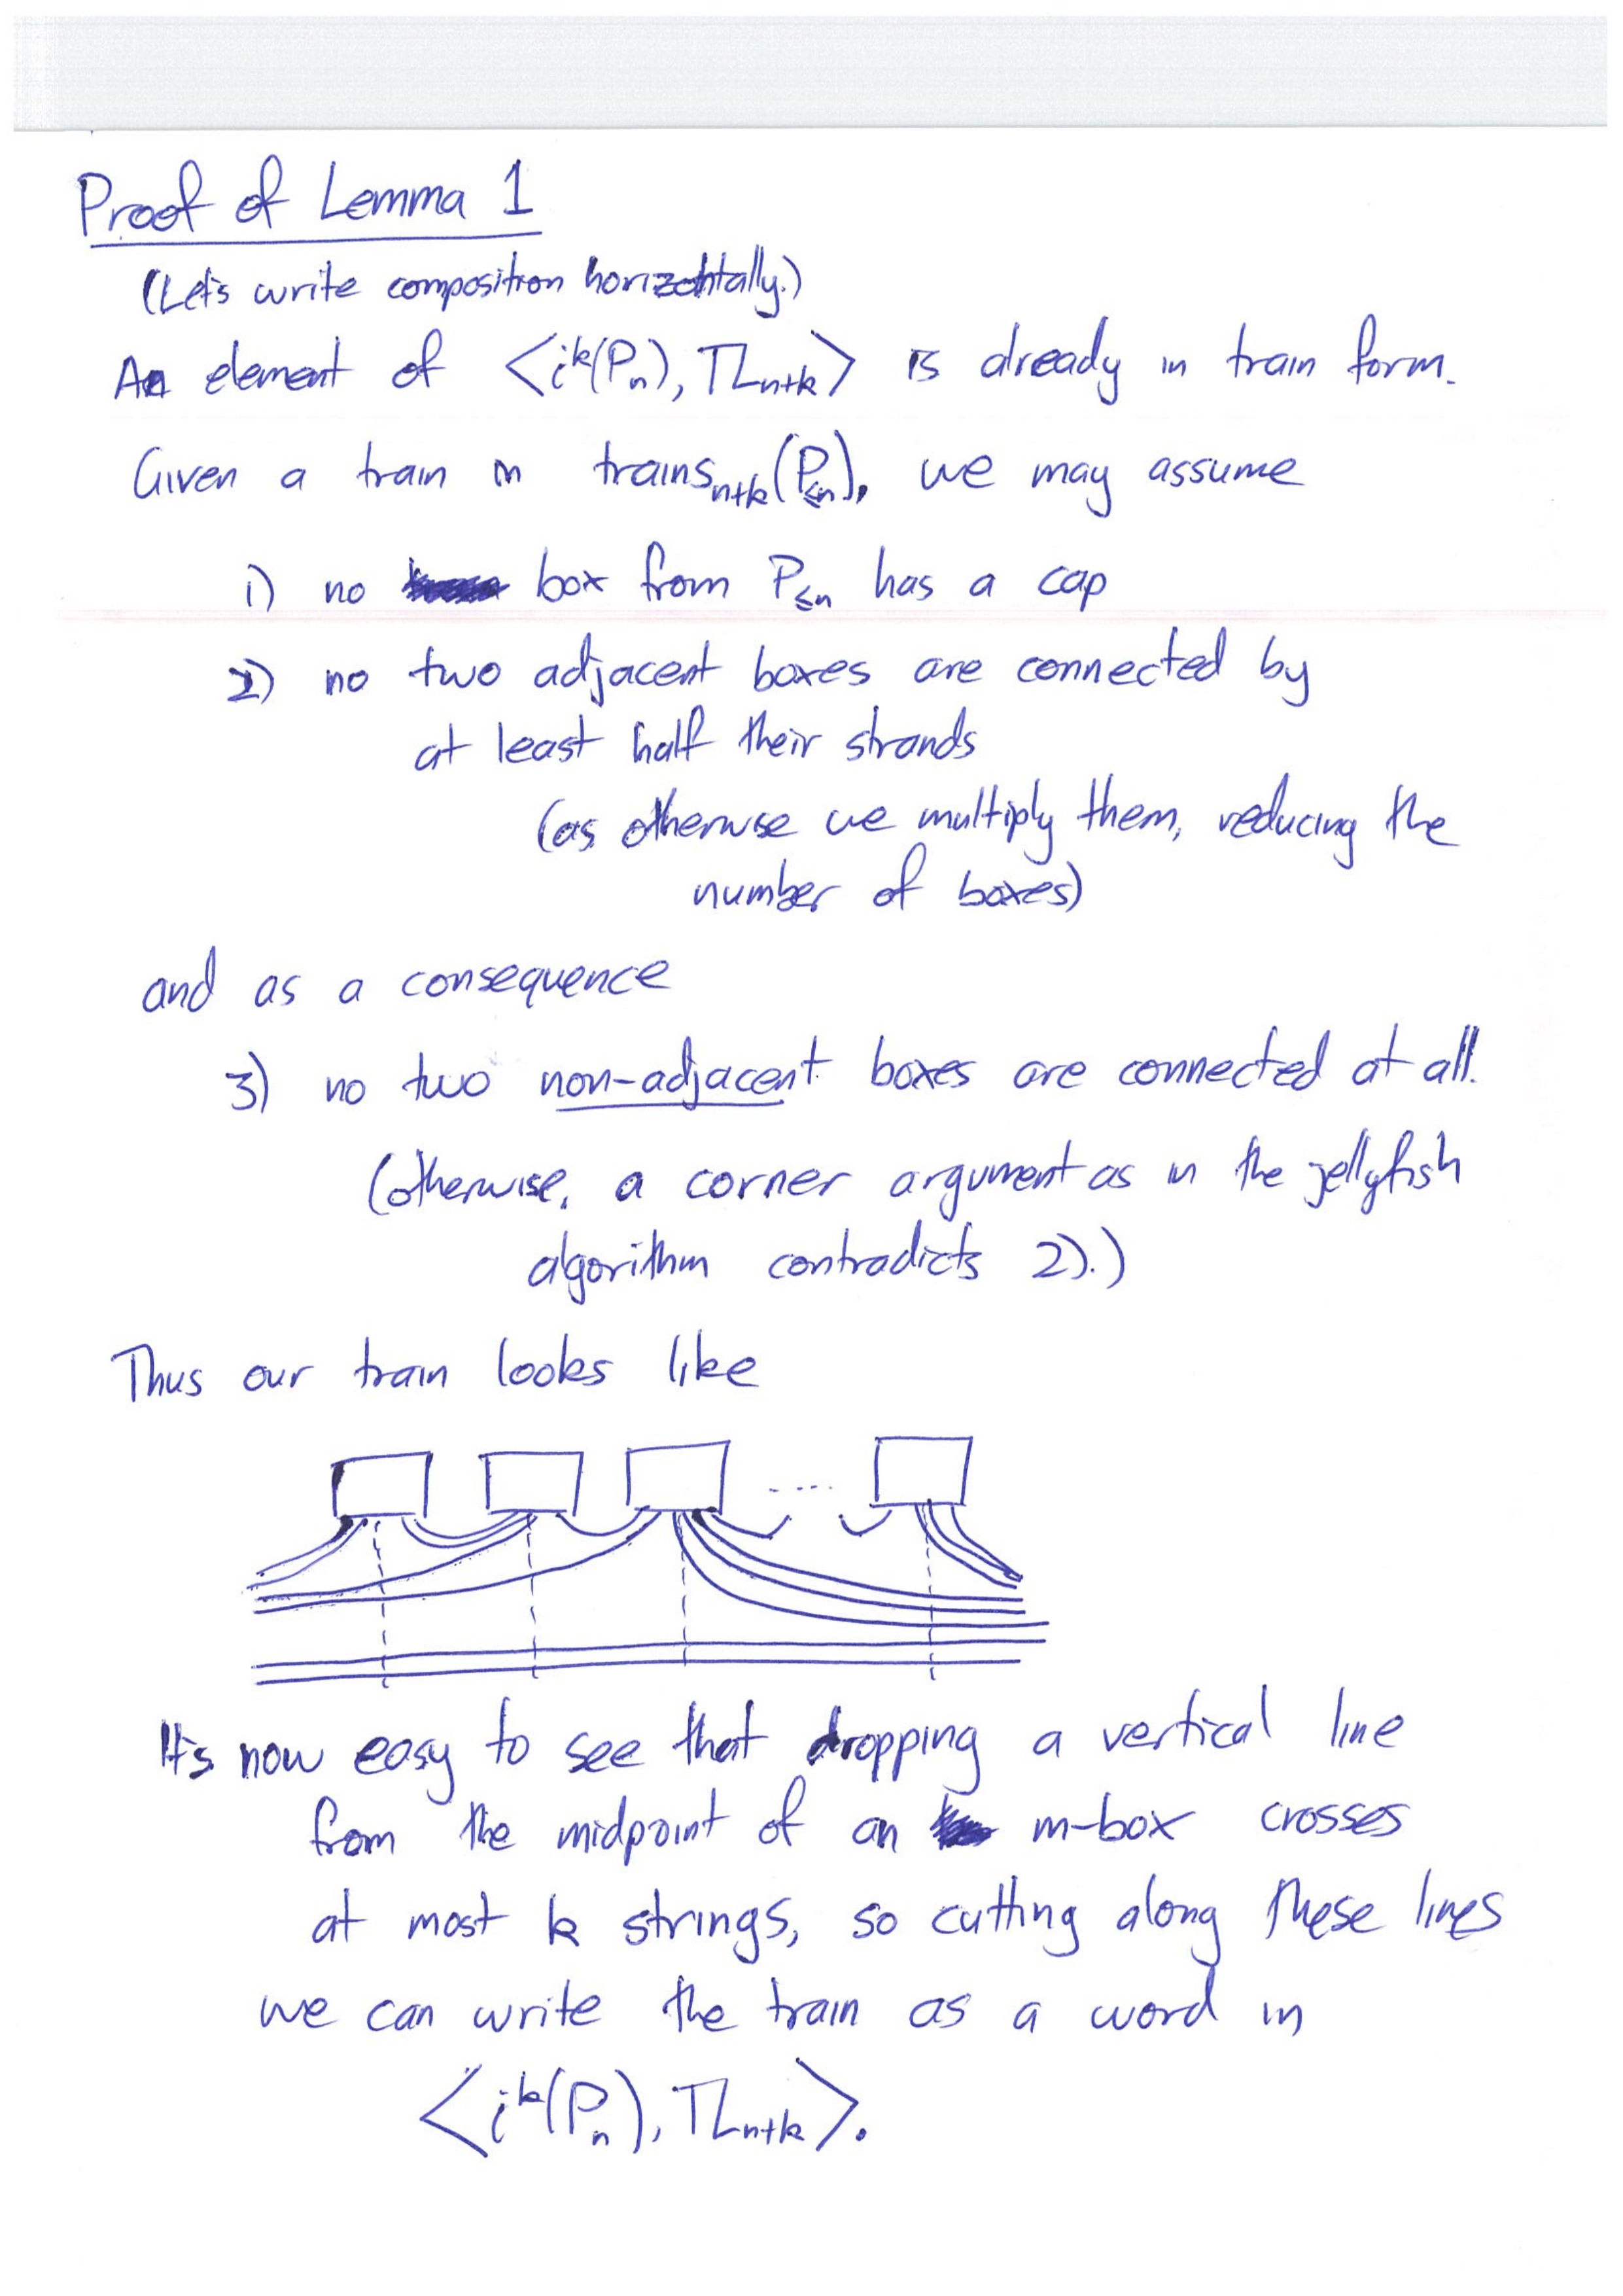 Proof of Lemma 1
(Let's write composition horizontally.)
An element of <i^k(P_n), TL_{n+k}> is already in train form.
Given a train in trains_{n+k}(P_{≤n}), we may assume
1) no box from P_{≤n} has a cap
2) no two adjacent boxes are connected by
at least half their strands
(as otherwise we multiply them, reducing the
number of boxes)
and as a consequence
3) no two non-adjacent boxes are connected at all.
(otherwise, a corner argument as in the jellyfish
algorithm contradicts 2).)
Thus our train looks like
.....
It's now easy to see that dropping a vertical line
from the midpoint of an m-box crosses
at most k strings, so cutting along these lines
we can write the train as a word in
<i^k(P_n), TL_{n+k}>.